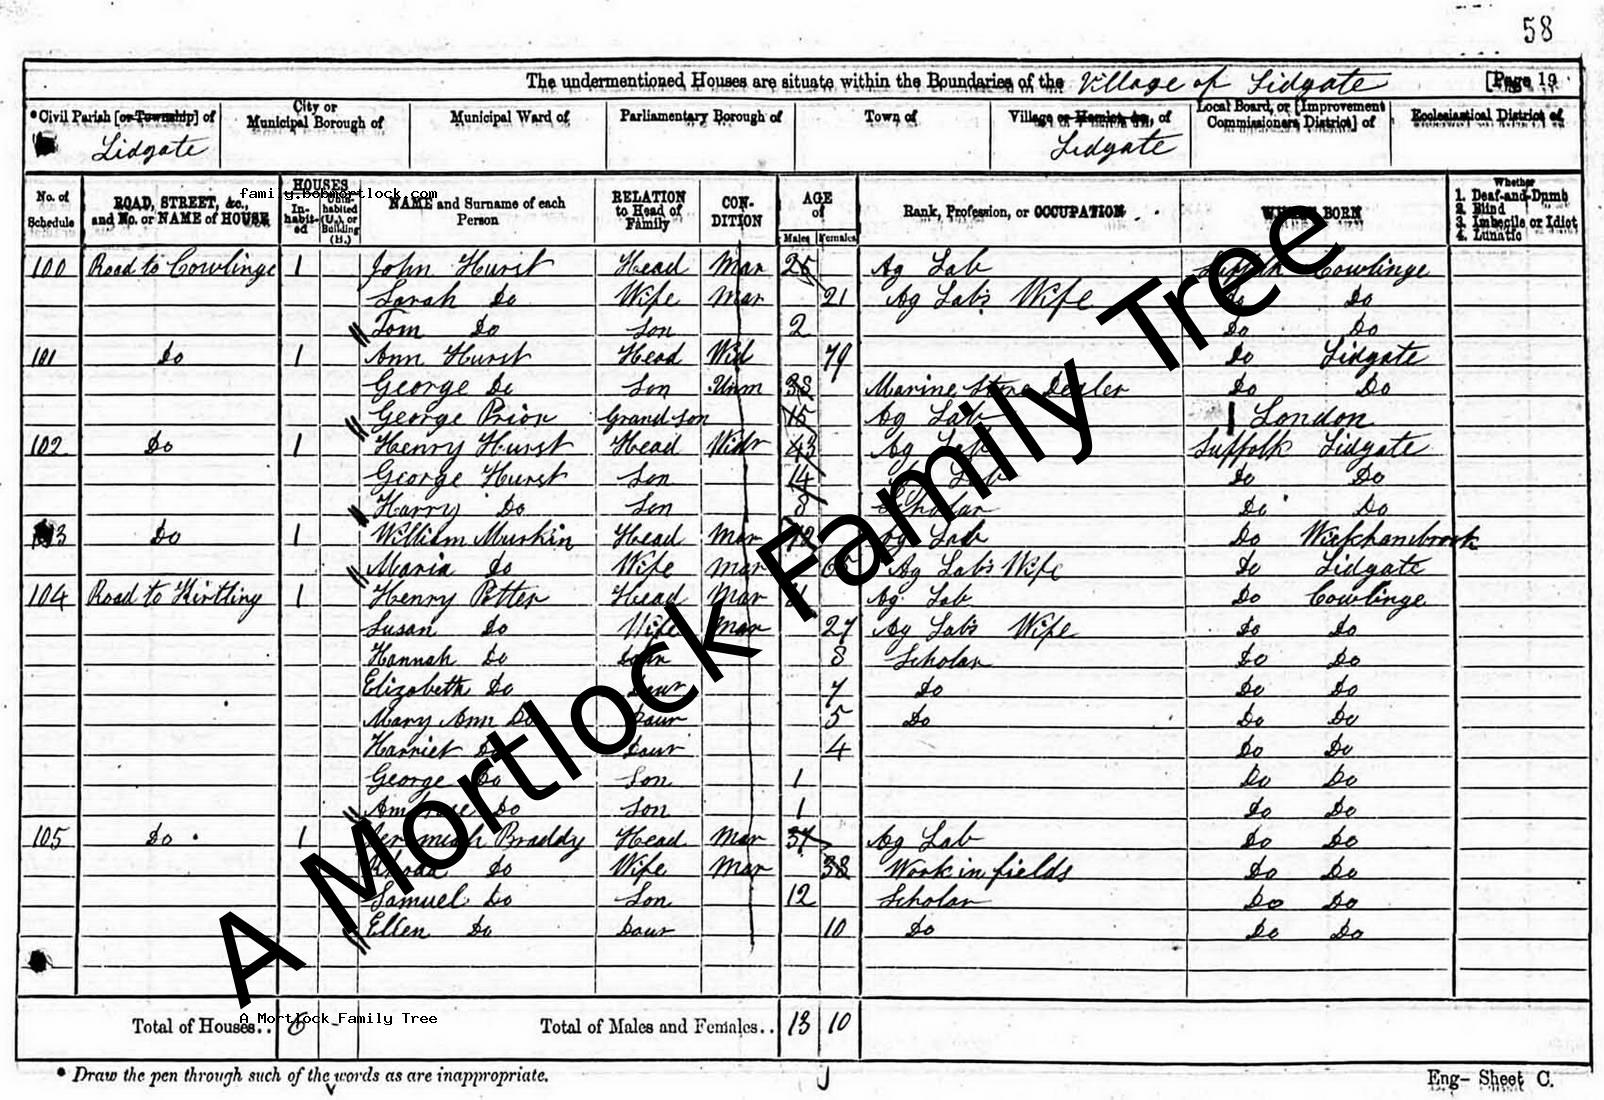 58
The undermentioned Houses are situate within the Boundaries of the Village of Lidgate [Page 19
*Civil Parish [or Township] of Lidgate
City or Municipal Borough of
Municipal Ward of
Parliamentary Borough of
Town of
Village or Hamlet, &c., of Lidgate
Local Board, or [Improvement Commissioners District] of
Ecclesiastical District of
No. of Schedule
ROAD, STREET, &c., and No. or NAME of HOUSE
HOUSES
In-habit-ed
Unin-habited (U.), or Building (B.)
NAME and Surname of each Person
RELATION to Head of Family
CON-DITION
AGE of
Males Females
Rank, Profession, or OCCUPATION
WHERE BORN
Whether
1. Deaf-and-Dumb
2. Blind
3. Imbecile or Idiot
4. Lunatic
family.bobmortlock.com
100 Road to Cowlinge 1 John Hurst Head Mar 25 Ag Lab Suffolk Cowlinge
Sarah Do Wife Mar 21 Ag Lab's Wife Do Do
Tom Do Son 2 Do Do
101 Do 1 Ann Hurst Head Wid 79 Do Lidgate
George Do Son Unm 38 Marine Store Dealer Do Do
George Prior Grandson 15 Ag Lab London
102 Do 1 Henry Hurst Head Widr 43 Ag Lab Suffolk Lidgate
George Hurst Son 14 Ag Lab Do Do
Harry Do Son 8 Scholar Do Do
103 Do 1 William Murkin Head Mar 72 Ag Lab Do Wickhambrook
Maria Do Wife Mar 65 Ag Lab's Wife Do Lidgate
104 Road to Kirtling 1 Henry Potter Head Mar Ag Lab Do Cowlinge
Susan Do Wife Mar 27 Ag Lab's Wife Do Do
Hannah Do Daur 8 Scholar Do Do
Elizabeth Do Daur 7 Do Do Do
Mary Ann Do Daur 5 Do Do Do
Harriet Do Daur 4 Do Do
George Do Son 1 Do Do
Ambrose Do Son 1 Do Do
105 Do 1 Jeremiah Braddy Head Mar 37 Ag Lab Do Do
Rhoda Do Wife Mar 38 Work in fields Do Do
Samuel Do Son 12 Scholar Do Do
Ellen Do Daur 10 Do Do Do
A Mortlock Family Tree
Total of Houses.. 6
Total of Males and Females.. 13 10
A Mortlock Family Tree
* Draw the pen through such of the words as are inappropriate.
Eng- Sheet C.